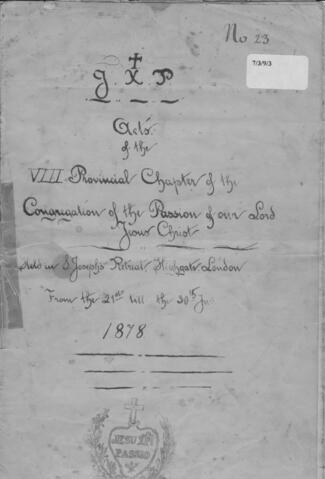 No 23
7/3/9/3
J. X. P.
Acts
of the
VIII Provincial Chapter of the
Congregation of the Passion of our Lord
Jesus Christ
Held in S. Joseph's Retreat, Highgate, London
From the 21st till the 30th
1878
JESU XPI
PASSIO